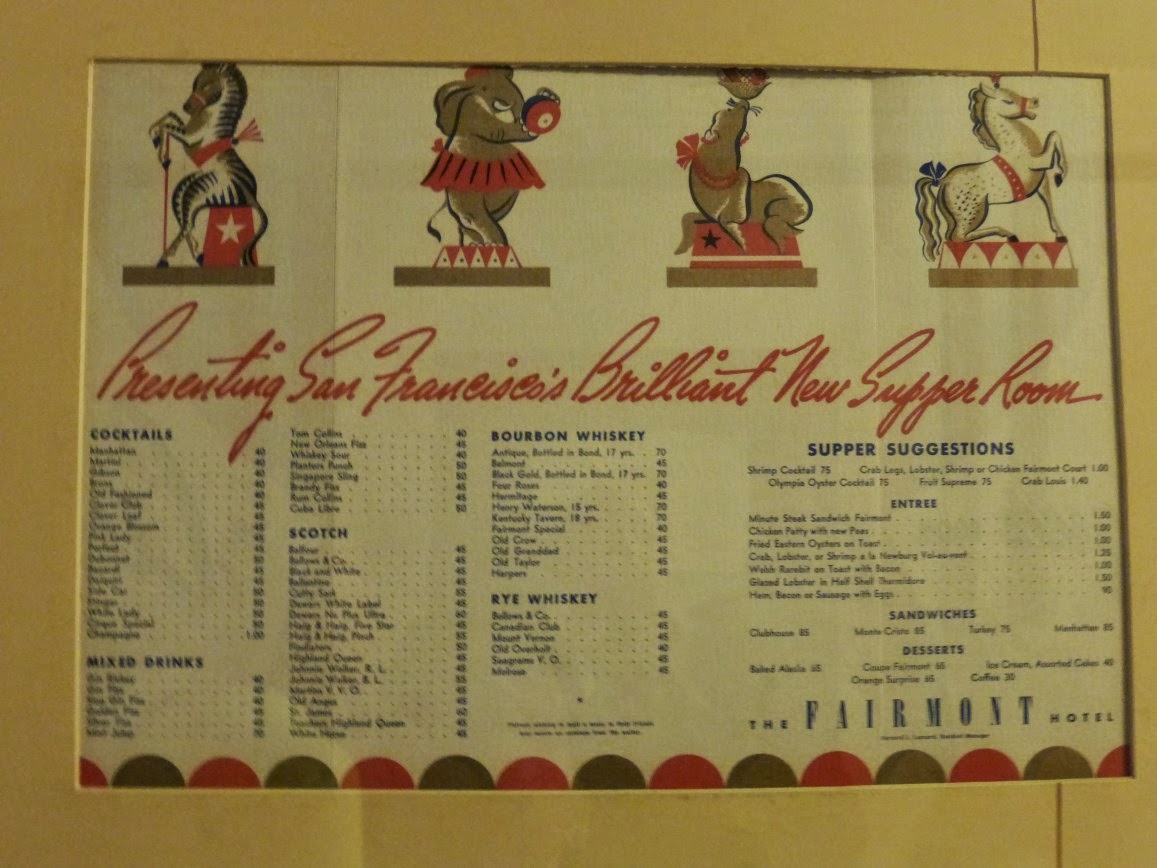 Presenting San Francisco's Brilliant New Supper Room
COCKTAILS
Manhattan 40
Martini 40
Gibson 40
Bronx 40
Old Fashioned 40
Clover Club 45
Clover Leaf 45
Orange Blossom 45
Pink Lady 45
Perfect 45
Dubonnet 50
Bacardi 45
Daiquiri 45
Side Car 50
Stinger 50
White Lady 50
Cirque Special 50
Champagne 1.00
MIXED DRINKS
Gin Rickey 40
Gin Fizz 40
Sloe Gin Fizz 40
Golden Fizz 45
Silver Fizz 40
Mint Julep
Tom Collins 40
New Orleans Fizz 45
Whiskey Sour 40
Planters Punch 50
Singapore Sling 50
Brandy Fizz 45
Rum Collins 45
Cuba Libre 50
SCOTCH
Balfour 45
Bellows & Co. 45
Black and White 45
Ballantine 45
Cutty Sark 55
Dewars White Label 45
Dewars Ne Plus Ultra 60
Haig & Haig, Five Star 45
Haig & Haig, Pinch 55
Findlaters 50
Highland Queen 45
Johnnie Walker, R. L. 45
Johnnie Walker, B. L. 55
Martins V. V. O. 45
Old Angus 45
St. James 60
Teachers Highland Queen 45
White Horse 45
BOURBON WHISKEY
Antique, Bottled in Bond, 17 yrs. 70
Belmont 45
Black Gold, Bottled in Bond, 17 yrs. 70
Four Roses 40
Hermitage 45
Henry Waterson, 15 yrs. 70
Kentucky Tavern, 18 yrs. 70
Fairmont Special 40
Old Crow 45
Old Granddad 45
Old Taylor 45
Harpers 45
RYE WHISKEY
Bellows & Co. 45
Canadian Club 45
Mount Vernon 45
Old Overholt 40
Seagrams V. O. 45
Melrose 45
SUPPER SUGGESTIONS
Shrimp Cocktail 75 Crab Legs, Lobster, Shrimp or Chicken Fairmont Court 1.00
Olympia Oyster Cocktail 75 Fruit Supreme 75 Crab Louis 1.40
ENTREE
Minute Steak Sandwich Fairmont 1.50
Chicken Patty with new Peas 1.00
Fried Eastern Oysters on Toast 1.00
Crab, Lobster, or Shrimp a la Newburg Vol-au-vent 1.25
Welsh Rarebit on Toast with Bacon 1.00
Glazed Lobster in Half Shell Thermidore 1.50
Ham, Bacon or Sausage with Eggs 90
SANDWICHES
Clubhouse 85 Monte Cristo 85 Turkey 75 Manhattan 85
DESSERTS
Baked Alaska 65 Coupe Fairmont 65 Ice Cream, Assorted Cakes 40
Orange Surprise 65 Coffee 30
THE FAIRMONT HOTEL